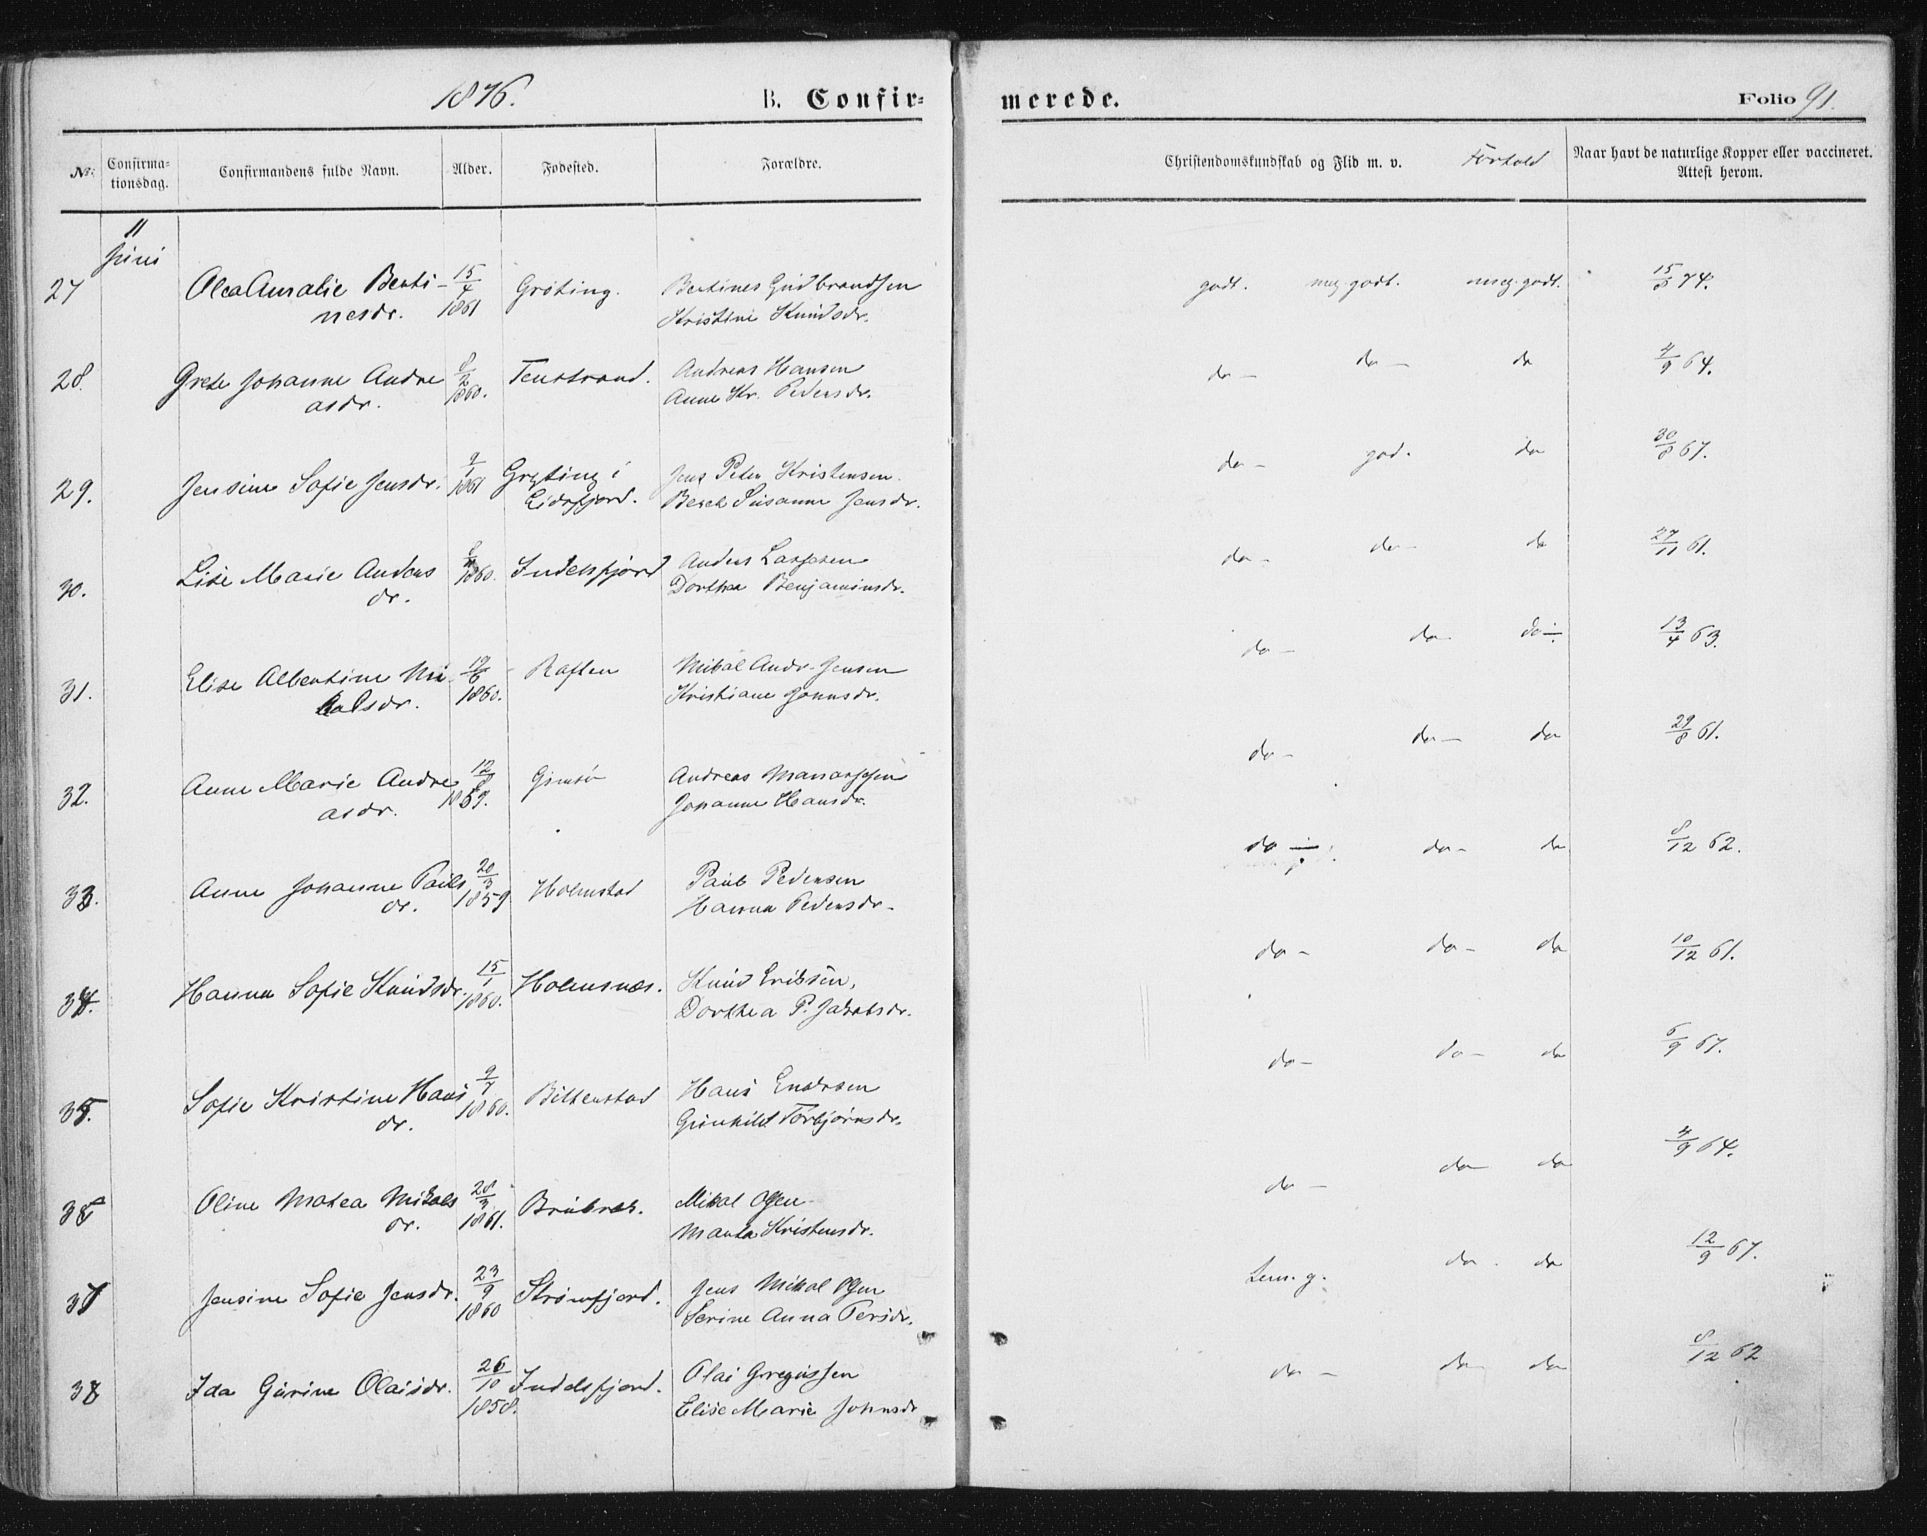 1876.
B. Confir=
merede.
Folio 91.
No. Confirma=tionsdag. Confirmandens fulde Navn. Alder. Fødested. Forældre. Christendomskundskab og Flid m. v. Forhold Naar havt de naturlige Kopper eller vaccineret. Attest herom.
11
Juni
27 Olea Amalie Berti- 15/4 Grøting. Bertines Gudbrandsen godt. meg. godt. meg. godt. 15/5 74.
nesdr. 1861 Kristine Knudsdr.
28. Grete Johanne Andre 8/2 Tenstrand. Andreas Hansen do - do - do 4/9 64.
asdr. 1860. Anne Kr. Pedersdr.
29. Jensine Sofie Jensdr. 9/1 1861 Gryting i Jens Peter Kristensen do - god. do 30/8 67.
Eidsfjord. Susanne Jensdr.
30. Lise Marie Anders 1860. Indelsfjord Anders do - do - do 27/11 61.
dr. Dorthea Benjaminsdr.
31. Elise Albertine Mi- 19/6 Raften Mikal Andr. Jensen do - do do 13/4 63.
kalsdr. 1860. Kristiane Johnsdr.
32. Anne Marie Andre 12/8 Gimsø Andreas do - do - do 29/8 61.
asdr. 1859. Johanne Hansdr.
33. Anne Johanne Pauls 20/3 Holmstad Paul Pedersen do do - do 8/12 62.
dr. 1859 Hanna Pedersdr.
34. Hanna Sofie Knudsdr. 15/1 1860. Holmsnes. Knud Eriksen, do - do - do 10/12 61.
Dorthea P. Jakobsdr.
35. Sofie Kristine Hans 9/7 Bitterstad Hans do - do - do 6/9 67.
dr. 1860. Gunhild Torbjørnsdr.
36 Oline Matea Mikals 28/3 Mikal Olsen do - do do 4/9 64.
dr. 1861. Kristensdr.
37 Jensine Sofie Jensdr. 23/9 Strømfjord. Jens Mikal Olsen Tem. g. do do 12/9 67.
1860 Serine Anna Persdr.
38 Ida Gurine Olaisdr. 26/10 Indelsfjord. Olai Gregussen do - do do 8/12 62
1858. Elise Marie Johnsdr